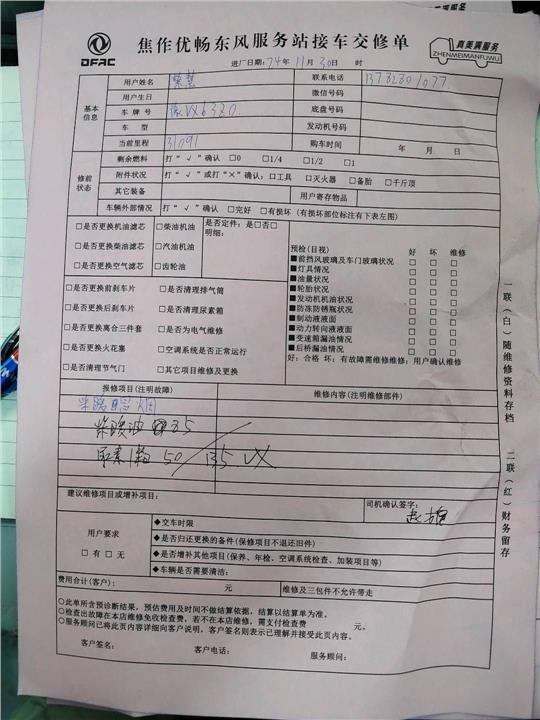 DFAC
焦作优畅东风服务站接车交修单
真美满服务
ZHENMEIMANFUWU
进厂日期:24年 11月 30日 时
用户姓名 联系电话
基本信息
用户生日 微信号码
车牌号 豫VX6320 底盘号码
车型 发动机号码
当前里程 31091 购车时间 年 月 日
修前状态
剩余燃料 打“√”确认 □0 □1/4 □1/2 □1
附件状况 打“√”或打“×”确认:□工具 □灭火器 □备胎 □千斤顶
其它装备 用户寄存物品
车辆外部情况 打“√”确认 □完好 □有损坏(有损坏部位标注有下表左图)
□是否更换机油滤芯 □柴油机油 是否定件:是□否□
明细:
□是否更换柴油滤芯 □汽油机油
□是否更换空气滤芯 □齿轮油
预检(目视) 好 坏 维修
■前挡风玻璃及车门玻璃状况 □ □ □
■灯具情况 □ □ □
■油量状况 □ □ □
■轮胎状况 □ □ □
■发动机机油状况 □ □ □
■防冻防锈瓶状况 □ □ □
■制动液液面 □ □ □
■动力转向液液面 □ □ □
■变速箱漏油情况 □ □ □
■后桥漏油情况 □ □ □
好:合格 坏:有故障需维修维修:用户确认维修
□是否更换前刹车片 □是否清理排气筒
□是否更换后刹车片 □是否清理尿素箱
□是否更换离合三件套 □是否为电气维修
□是否更换火花塞 □空调系统是否正常运行
□是否清理节气门 □其它项目维修及更换
报修项目(注明故障) 维修内容(注明维修部件)
柴暖油 85
尿素1箱 50 135 VX
建议维修项目或增补项目:
司机确认签字:
用户要求
□有 □无
◆交车时限
◆是否归还更换的备件(保修项目不退还旧件)
◆是否增补其他项目(保养、年检、空调系统检查、加装项目等)
◆车辆是否需要清洁:
费用合计(客户): 元 维修及三包件不允许带走
○此单所含预诊断结果,预估费用及时间不做结算依据,结算以结算单为准。
○检查出故障在本店维修免收检查费,若不在本店维修,需支付检查费 元。
○服务顾问已将此页内容详细向客户说明,客户签名则表示已理解并接受此页内容。
客户签名: 客户电话: 服务顾问:
一联(白)随维修资料存档
二联(红)财务留存